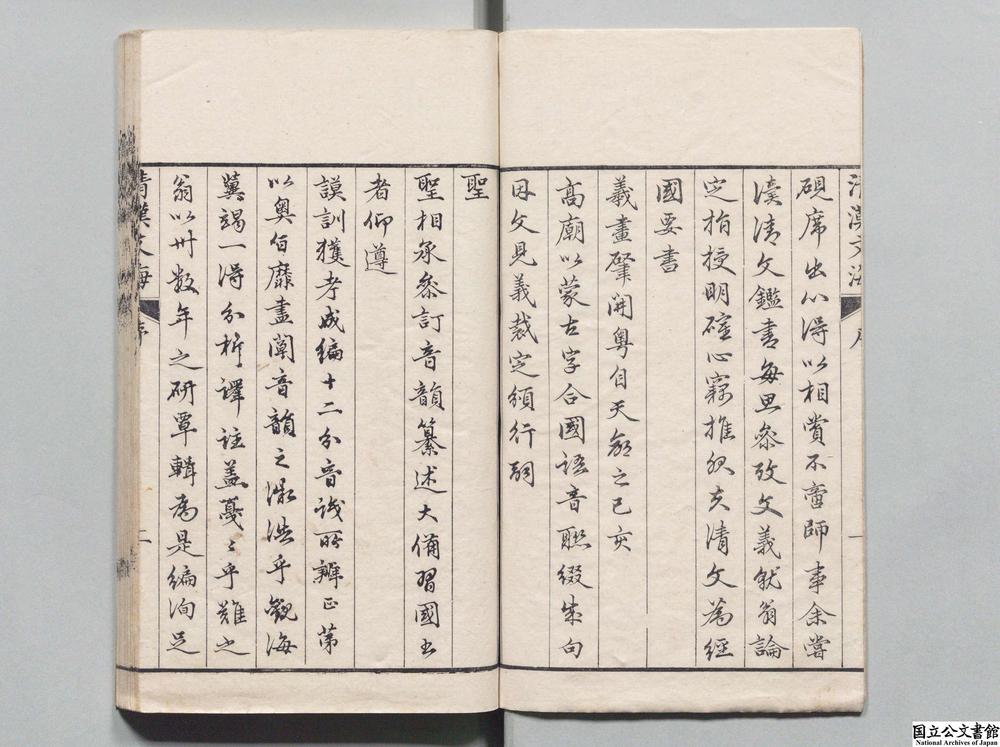 清漢文海
序
一
硯席出心得以相賞不啻師事余嘗
讀清文鑑書每思參攷文義就翁論
定指授明確心竊推服夫清文為經
國要書
羲畫肇開粵自天命之己亥
高廟以蒙古字合國語音聯綴成句
因文見義裁定頒行嗣
聖
聖相承參訂音韻纂述大備習國書
者仰遵
謨訓獲考成編十二分音識所辨正第
以奧佰靡盡闡音韻之淵浩乎觀海
冀竭一得分析譯註蓋戞〻乎難之
翁以卅數年之研覃輯為是編洵足
清漢文海
序
二
国立公文書館
National Archives of Japan